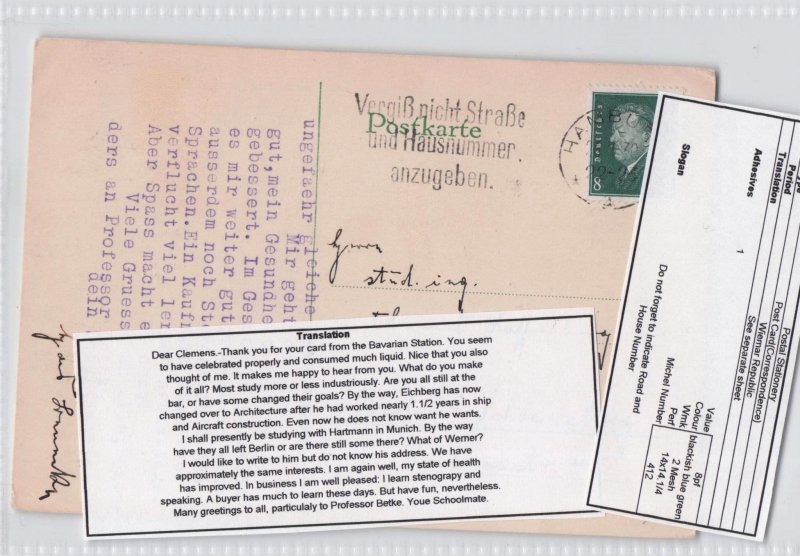 Vergiß nicht Straße
und Hausnummer
anzugeben.
Postkarte
HAMBU
Deutsches
8
ungefaehr gleiche
Mir geht
gut, mein Gesundhe
gebessert. Im Ges
es mir weiter gut
ausserdem noch Ste
Sprachen. Ein Kaufm
verflucht viel ler
Aber Spass macht e
Viele Gruess
ders an Professor
dein
Herrn
stud. ing.
Translation
Dear Clemens.-Thank you for your card from the Bavarian Station. You seem
to have celebrated properly and consumed much liquid. Nice that you also
thought of me. It makes me happy to hear from you. What do you make
of it all? Most study more or less industriously. Are you all still at the
bar, or have some changed their goals? By the way, Eichberg has now
changed over to Architecture after he had worked nearly 1.1/2 years in ship
and Aircraft construction. Even now he does not know want he wants.
I shall presently be studying with Hartmann in Munich. By the way
have they all left Berlin or are there still some there? What of Werner?
I would like to write to him but do not know his address. We have
approximately the same interests. I am again well, my state of health
has improved. In business I am well pleased: I learn stenograpy and
speaking. A buyer has much to learn these days. But have fun, nevertheless.
Many greetings to all, particulaly to Professor Betke. Youe Schoolmate.
Period
Translation
Adhesives
1
Slogan
Postal Stationery
Post Card(Correspondence)
Wiemar Republic
See separate sheet
Do not forget to indicate Road and
House Number
Value 8pf
Colour blackish blue green
Wmk 2 Mesh
Perf 14x14.1/4
Michel Number 412